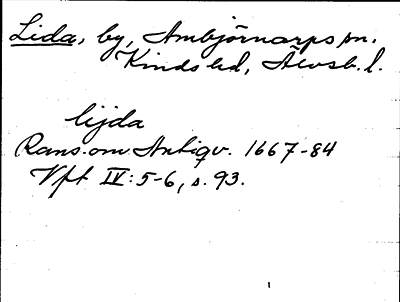 Lida, by, Ambjörnarps sn.
Kinds hd, Älvsb. l.
lijda
Rans. om Antiqv. 1667-84
Vft IV: 5-6, s. 93.